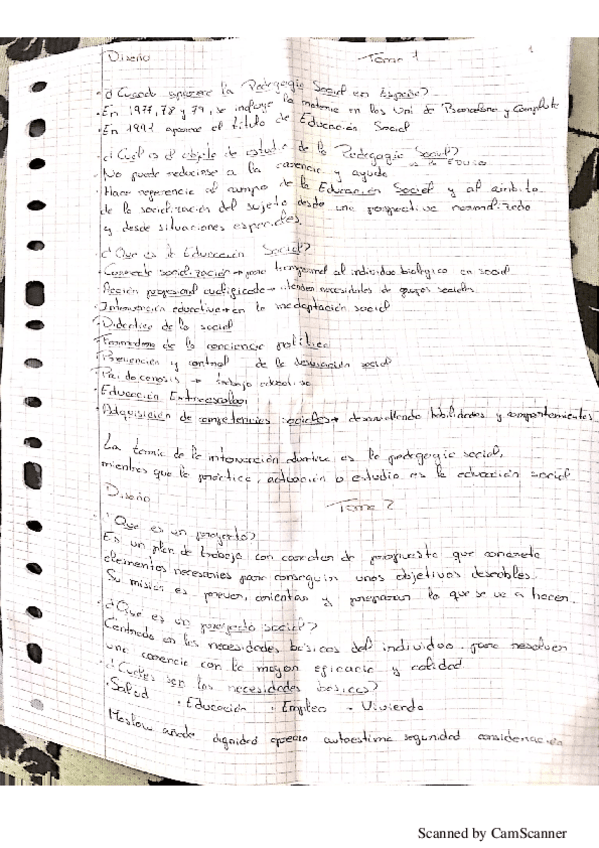 Diseño Tema 1 1
¿Cuando aparece la Pedagogía Social en España?
· En 1977, 78 y 79, se incluye la materia en las Uni de Barcelona y Complute
· En 1991 aparece el título de Educación Social
¿Cual es el objeto de estudio de la Pedagogía Social?
· No puede reducirse a la carencia y ayuda
· Hace referencia al campo de la Educación Social y al ámbito
de la socialización del sujeto desde una perspectiva normalizada
y desde situaciones especiales.
¿Que es la Educación Social?
· Correcta socialización → para transformar al individuo biológico en social
· Acción profesional cualificada → atienden necesidades de grupos sociales.
· Intervención educativa → en la inadaptación social
· Didactica de lo social
· Formadora de la conciencia politica
· Prevencion y control de la desviación social
· Paidocenosis → trabajo educativo
· Educación Extraescolar
· Adquisición de competencias sociales → desarrollando habilidades y comportamientos.
La teoria de la es la pedagogía social,
mientras que la práctica, actuación o estudio es la educación social
Diseño Tema 2
¿Que es un proyecto?
Es un plan de trabajo con caracter de propuesta que concreta
elementos necesarios para conseguir unos objetivos deseables.
Su misión es prever, orientar y preparar lo que se va a hacer.
¿Que es un proyecto social?
Centrado en las necesidades básicas del individuo para resolver
una carencia con la mayor eficacia y calidad
¿Cuales son las necesidades basicas?
· Salud · Educación · Empleo · Vivienda
Maslow añade dignidad aprecio autoestima seguridad consideración
Scanned by CamScanner